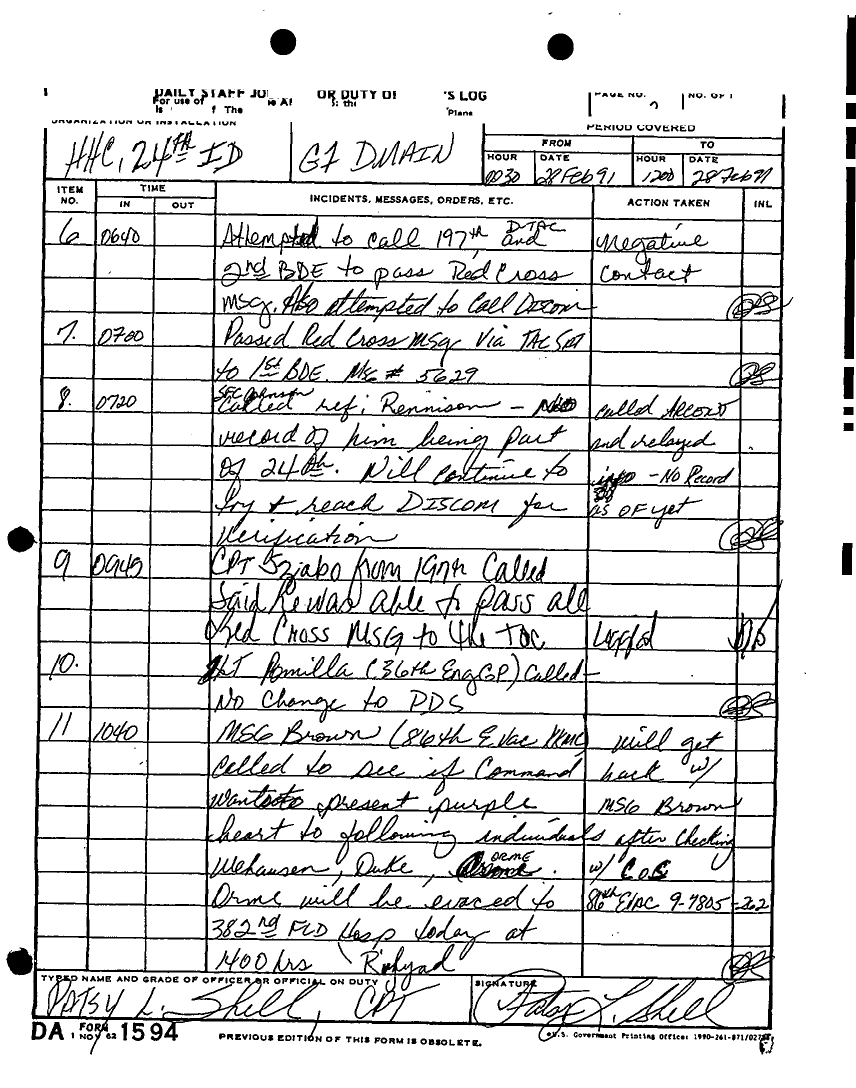 DAILY STAFF JO OR DUTY OF 'S LOG
For use of
PAGE NO. NO. OF
ORGANIZATION OR INSTALLATION
PERIOD COVERED
HHC, 24TH ID G1 DMAIN
FROM TO
HOUR DATE HOUR DATE
0030 28 Feb 91 1200 28 Feb 91
ITEM NO. TIME IN OUT INCIDENTS, MESSAGES, ORDERS, ETC. ACTION TAKEN INL
6 0640 Attempted to call 197th, D-TAC and Negative
2nd BDE to pass Red Cross Contact
msg. Also attempted to Call Discom
7. 0700 Passed Red Cross Msg Via TAC Sat
to 1st BDE. Msg # 5629
8. 0720 SFC Johnson Called ref; Rennison - No called ARCENT
record of him being part and relayed
of 24th. Will continue to info - No Record
try + reach DISCOM for as of yet
Verification
9 0945 CPT Sziabo from 197th Called
Said he was able to pass all
Red Cross MSG to 4th TOC Logged
10. LT Pomilla (36th Eng GP) Called-
No Change to PDS
11 1040 MSG Brown (86th Evac called to see if Command will get back w/
wants to present purple MSG Brown
heart to following individuals after checking
Wehausen, Duke, Orme. w/ CoS
Orme will be evaced to 86th EVAC 9-7805-262
382nd FLD Hosp today at
1400 hrs Riyad
TYPED NAME AND GRADE OF OFFICER OR OFFICIAL ON DUTY SIGNATURE
PATSY L. Shell, CPT Patsy L. Shell
DA FORM 1 NOV 62 1594 PREVIOUS EDITION OF THIS FORM IS OBSOLETE. U.S. Government Printing Office: 1990-261-871/027